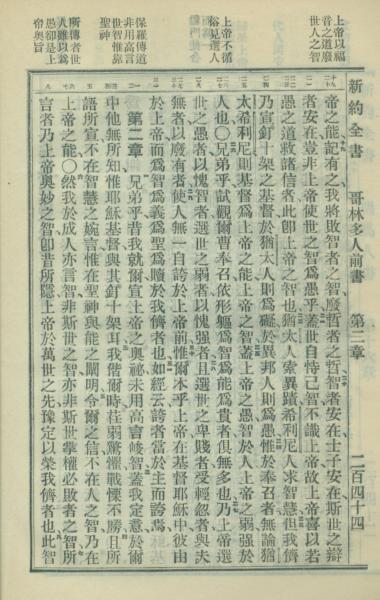 新約全書 哥林多人前書 第二章 二百四十四
上帝以福
音之道廢
世人之智
上帝不循
俗見選人
保羅傳道
非用高言
世智惟靠
聖神
所傳者世
人雖以爲
愚卻是上
帝奧旨
帝之能記有之我將敗智者之智廢哲者之哲智者安在士子安在斯世之辯
者安在豈非上帝使世之智爲愚乎蓋世自恃己智不識上帝故上帝喜以若
愚之道救諸信者此卽上帝之智也猶太人索異蹟希利尼人求智慧但我儕
乃宣釘十架之基督於猶太人則爲礙於異邦人則爲愚惟於奉召者無論猶
太希利尼則基督爲上帝之能上帝之智蓋上帝之愚智於人上帝之弱强於
人也○兄弟乎試觀爾曹奉召依形軀爲智爲能爲貴者俱無多也乃上帝選
世之愚者以愧智者選世之弱者以愧强者且選世之卑賤者受輕忽者與夫
無者以廢有者使人無一自誇於上帝前惟爾本乎上帝在基督耶穌中彼由
於上帝而爲智爲義爲聖爲贖於我儕者也如經云誇者當於主而誇焉
第二章 兄弟乎昔我就爾宣上帝之奧祕未用高言峻智蓋我定意於爾
中他無所知惟耶穌基督與其釘十架耳我偕爾時荏弱驚懼戰慄不勝且所
語所宣不在智慧之婉言惟在聖神與能之闡明令爾之信不在人之智乃在
上帝之能○然我於成人亦言智非斯世之智亦非斯世掌權必敗者之智所
言者乃上帝奧妙之智卽昔所隱上帝於萬世之先豫定以榮我儕者也此智